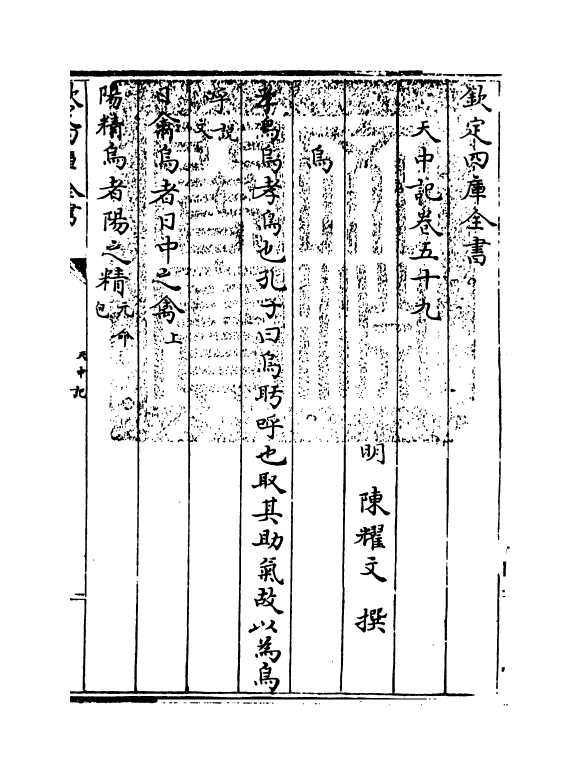 欽定四庫全書
天中記卷五十九
明 陳耀文 撰
烏
孝烏烏孝鳥也孔子曰烏盱呼也取其助氣故以為烏
呼說文
日禽烏者日中之禽上
陽精烏者陽之精元命包
欽定四庫全書
天中記